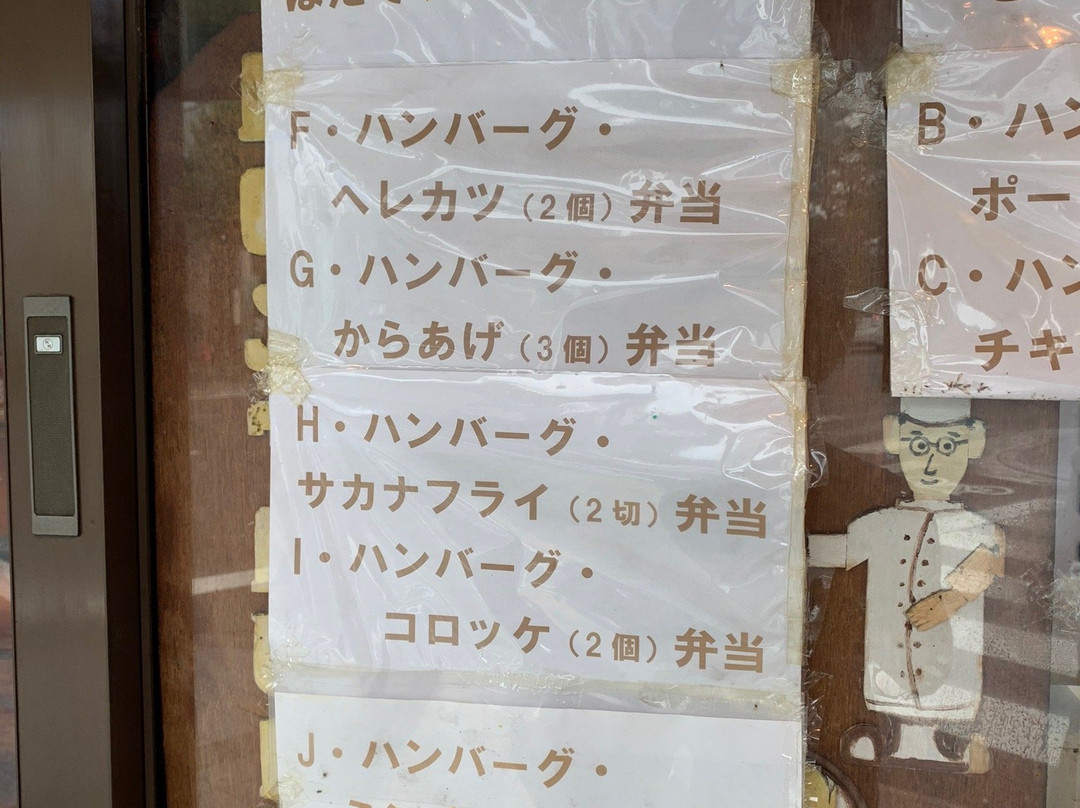 F・ハンバーグ・
ヘレカツ（2個）弁当
G・ハンバーグ・
からあげ（3個）弁当
H・ハンバーグ・
サカナフライ（2切）弁当
I・ハンバーグ・
コロッケ（2個）弁当
J・ハンバーグ・
B・ハン
ポー
C・ハン
チキ